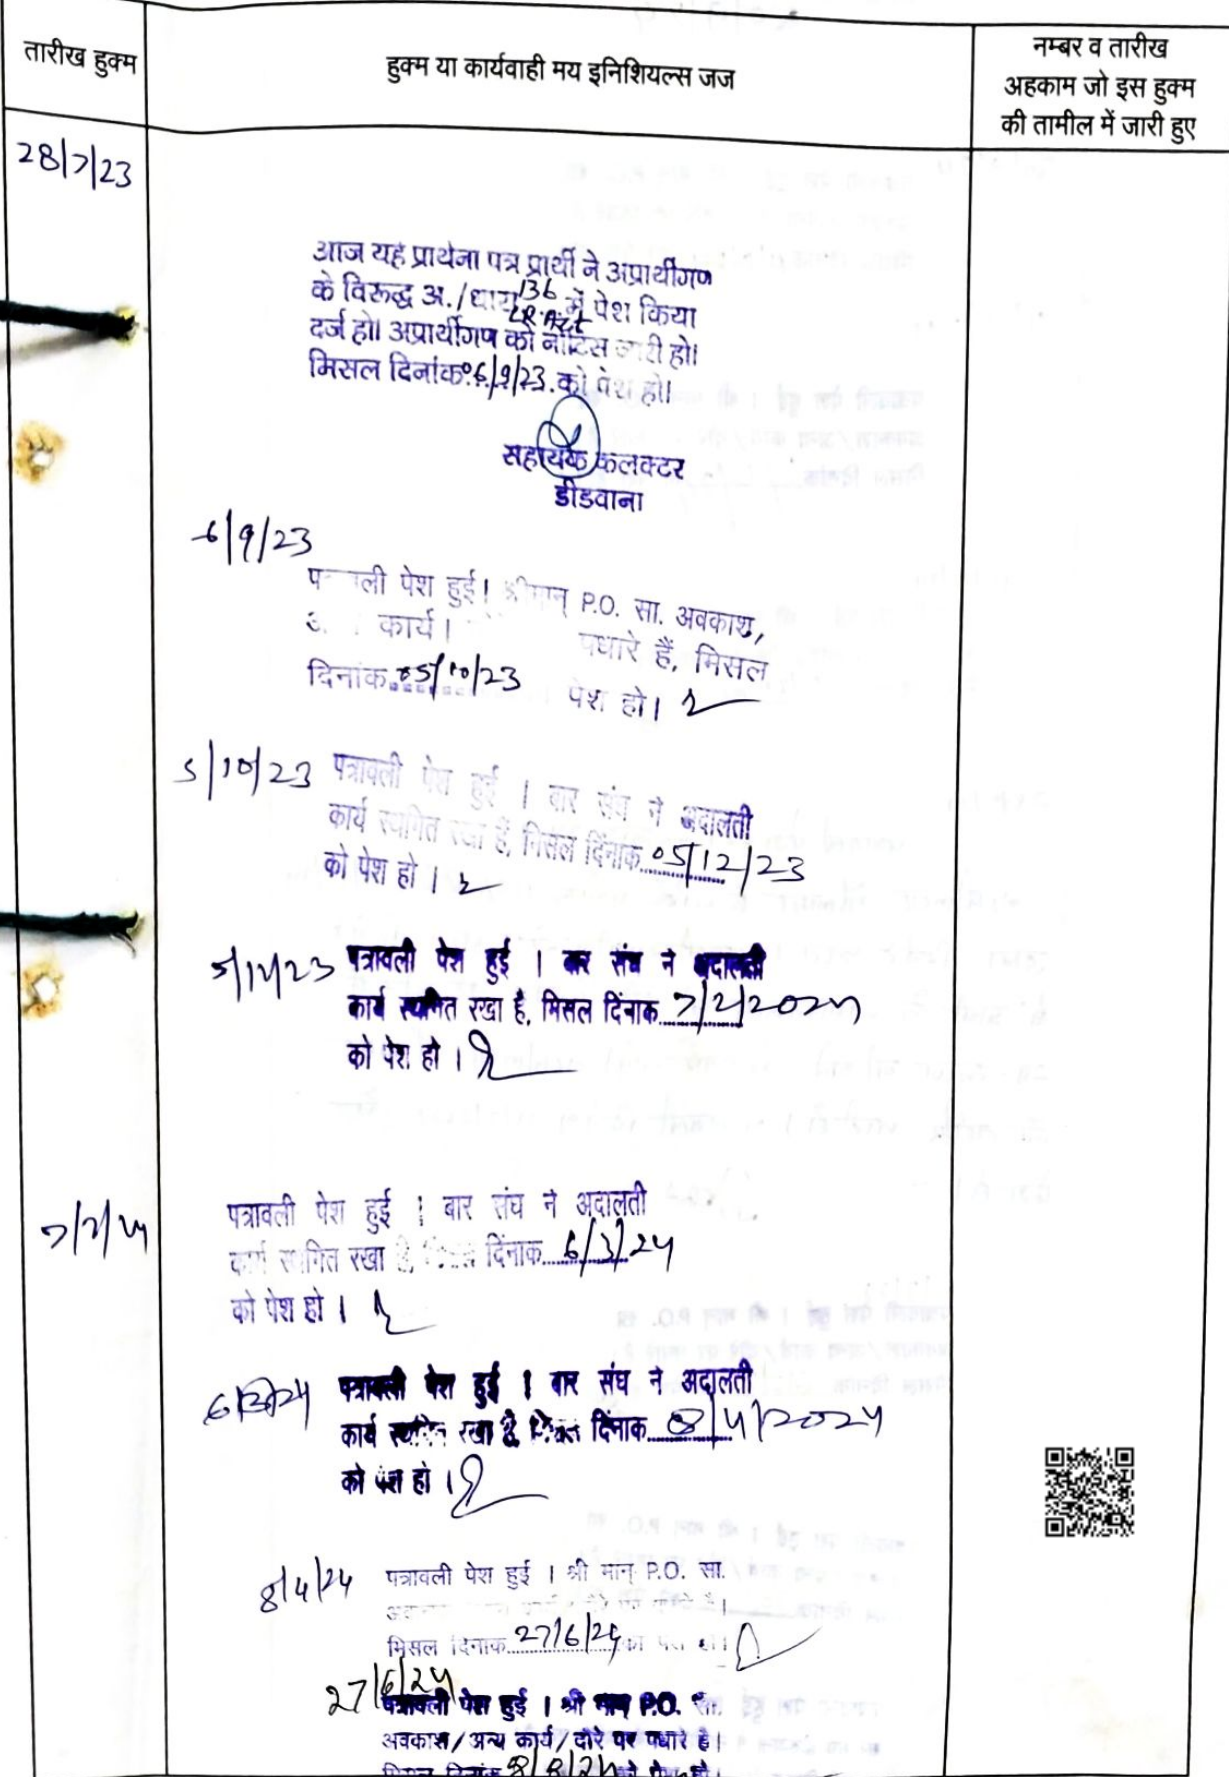 तारीख हुक्म
हुक्म या कार्यवाही मय इनिशियल्स जज
नम्बर व तारीख
अहकाम जो इस हुक्म
की तामील में जारी हुए
28/7/23
आज यह प्रार्थना पत्र प्रार्थी ने अप्रार्थीगण
के विरूद्ध अ./धारा 136 में पेश किया
LR Act
दर्ज हो। अप्रार्थीगण को नोटिस जारी हो।
मिसल दिनांक 06/9/23 को पेश हो।
सहायक कलक्टर
डीडवाना
6/9/23
पत्रावली पेश हुई। श्रीमान् P.O. सा. अवकाश,
कार्य। पधारे हैं, मिसल
दिनांक 05/10/23 पेश हो।
5/10/23 पत्रावली पेश हुई । बार संघ ने अदालती
कार्य स्थगित रखा है, मिसल दिनांक 05/12/23
को पेश हो ।
5/12/23 पत्रावली पेश हुई । बार संघ ने अदालती
कार्य स्थगित रखा है, मिसल दिनांक 7/2/2024
को पेश हो ।
7/2/24 पत्रावली पेश हुई । बार संघ ने अदालती
कार्य स्थगित रखा है, दिनांक 6/3/24
को पेश हो ।
6/3/24 पत्रावली पेश हुई । बार संघ ने अदालती
कार्य स्थगित रखा है, मिसल दिनांक 8/4/2024
को पेश हो ।
8/4/24 पत्रावली पेश हुई । श्री मान् P.O. सा.
मिसल दिनांक 27/6/24 को पेश हो।
27/6/24
पत्रावली पेश हुई । श्री मान् P.O. सा.
अवकाश/अन्य कार्य/दौरे पर पधारे है।
मिसल दिनांक 8/8/24 को पेश हो।